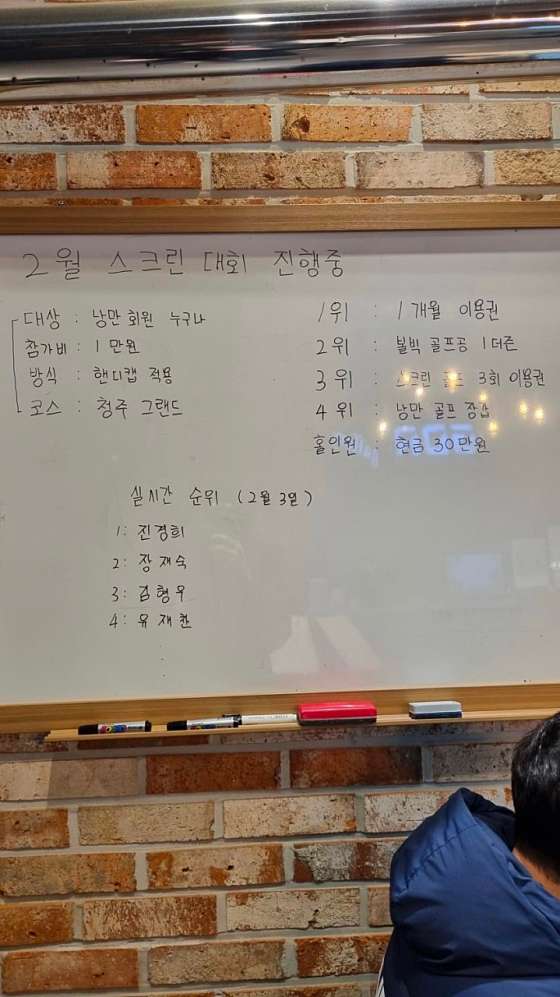 2월 스크린 대회 진행중
대상 : 낭만 회원 누구나
참가비 : 1 만원
방식 : 핸디캡 적용
코스 : 청주 그랜드
1위 : 1개월 이용권
2위 : 볼빅 골프공 1더즌
3위 : 스크린 골프 3회 이용권
4위 : 낭만 골프 장갑
홀인원 : 현금 30만원
실시간 순위 (2월 3일)
1: 진경희
2: 장재숙
3: 김형우
4: 유재찬